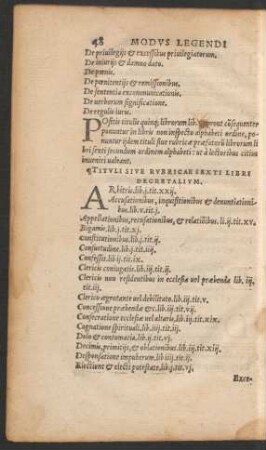 48 MODVS LEGENDI
De priuilegijs & excessibus priuilegiatorum.
De iniurijs & damno dato.
De pœnis.
De pœnitentijs & remissionibus.
De sententia excommunicationis.
De uerborum significatione.
De regulis iuris.
POsitis titulis quinq; librorum prout cōsequenter
ponuntur in libris non inspecto alphabeti ordine, po-
nuntur ijdem tituli siue rubricæ præfatorū librorum li
bri sexti secundum ordinem alphabeti: ut à lectoribus citius
inueniri ualeant.
¶TITVLI SIVE RVBRICAE SEXTI LIBRI
DECRETALIVM.
ARbitris.lib.j.tit.xxij.
Accusationibus, inquisitionibus & denuntiationi-
bus.lib.v.tit.j.
Appellationibus, recusationibus, & relationibus.li.ij.tit.xv.
Bigamis.lib.j.tit.xj.
Constitutionibus.lib.j.tit.ij.
Consuetudine.lib.j.tit.iij.
Confessis.lib.ij.tit.ix.
Clericis coniugatis.lib.iij.tit.ij.
Clericis non residentibus in ecclesia uel præbenda lib. iij,
tit.iij.
Clerico ægrotante uel debilitato.lib.iij.tit.v.
Concessione præbendæ &c.lib.iij.tit.vij.
Consecratione ecclesiæ uel altaris.lib.iij.tit.xix.
Cognatione spirituali.lib.iiij.tit.iij.
Dolo & contumacia.lib.ij.tit.vj.
Decimis, primitijs, & oblationibus.lib.iij.tit.xiij.
Desponsatione impuberum lib.iiij.tit.ij.
Electione & electi potestate.lib.j.tit.vj.
Exce-